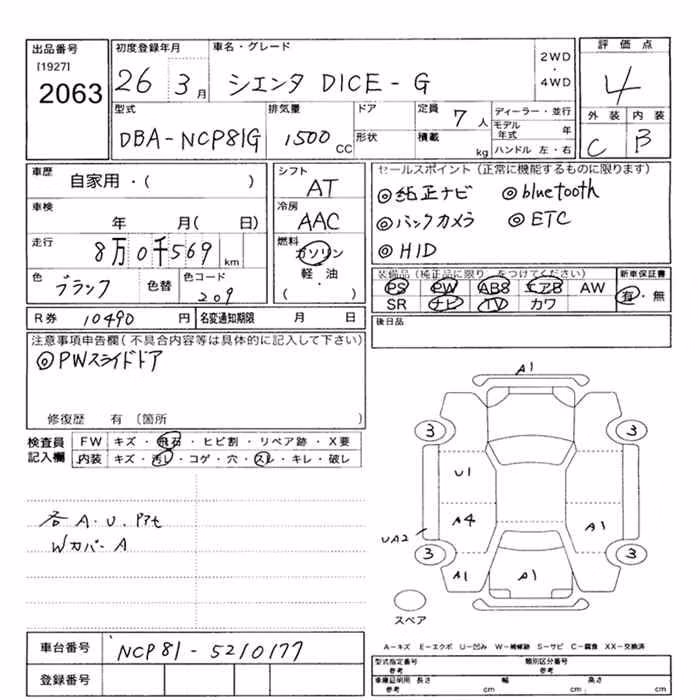 出品番号
[1927]
2063
初度登録年月
26 3月
車名・グレード
シエンタ DICE-G
2WD
・
4WD
評価点
4
外装 内装
C B
型式
DBA-NCP81G
排気量
1500 CC
ドア
形状
定員 7人
積載 kg
ディーラー・並行
モデル年式 年
ハンドル 左・右
車歴
自家用・( )
車検
年 月( 日)
走行
8万0千569 km
色
ブラック
色替
色コード
209
シフト
AT
冷房
AAC
燃料
ガソリン
軽・油
( ・ )
セールスポイント(正常に機能するものに限ります)
◎純正ナビ ◎bluetooth
◎バックカメラ ◎ETC
◎HID
装備品(純正品に限り、をつけてください)
PS PW ABS エアB AW
SR ナビ TV カワ
新車保証書
有・無
後日品
R券 10490円
名変通知期限 月 日
注意事項申告欄(不具合内容等は具体的に記入して下さい)
◎PWスライドドア
修復歴 有〔箇所
検査員
記入欄
FW キズ・飛石・ヒビ割・リペア跡・X要
内装 キズ・汚レ・コゲ・穴・スレ・キレ・破レ
各A.U.
Wカバー A
A1
3 3
U1
A4
A1
UA2
3 3
A1
A1
スペア
A-キズ E-エクボ U-凹み W-補修跡 S-サビ C-腐食 XX-交換済
車台番号
NCP81-5210177
登録番号
型式指定番号
参考
類別区分番号
参考
車庫証明用 長さ 幅 高さ
参考 cm cm cm